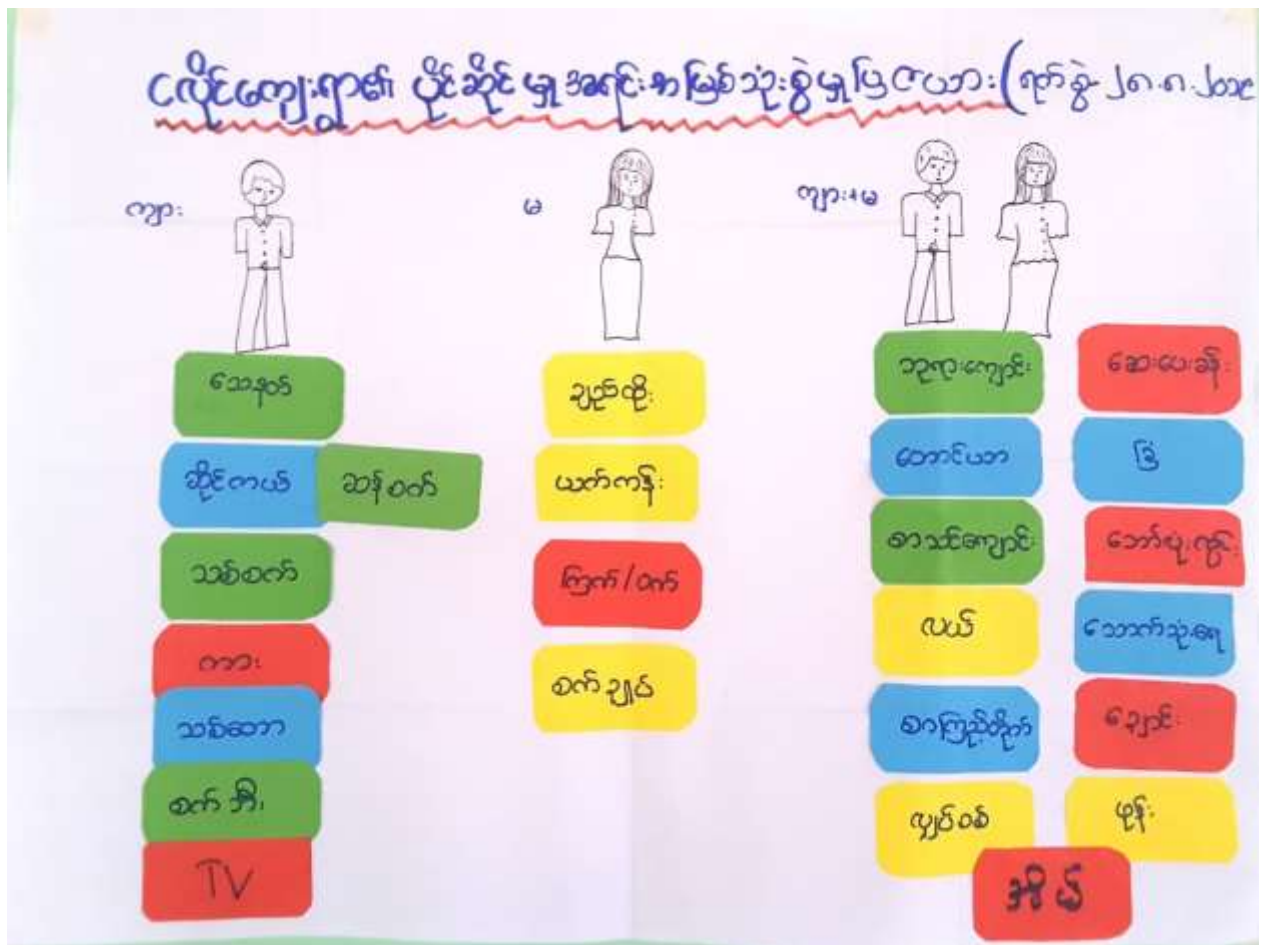 ငလိုင်ကျေးရွာ၏ ပိုင်ဆိုင်မှုအရင်းအမြစ်သုံးစွဲမှုပြဇယား (ရက်စွဲ- ၂၈.၈.၂၀၁၉
ကျား
မ
ကျား+မ
သေနတ်
ဆိုင်ကယ်
ဆန်စက်
သစ်စက်
ကား
သစ်တော
စက်ဘီး
TV
ချည်ထိုး
ယက်ကန်း
ကြက်/ဝက်
စက်ချုပ်
ဘုရားကျောင်း
တောင်ယာ
စာသင်ကျောင်း
လယ်
စာကြည့်တိုက်
လျှပ်စစ်
ဆေးပေးခန်း
ခြံ
ဘော်လုံးကွင်း
သောက်သုံးရေ
ချောင်း
ဖုန်း
အိမ်